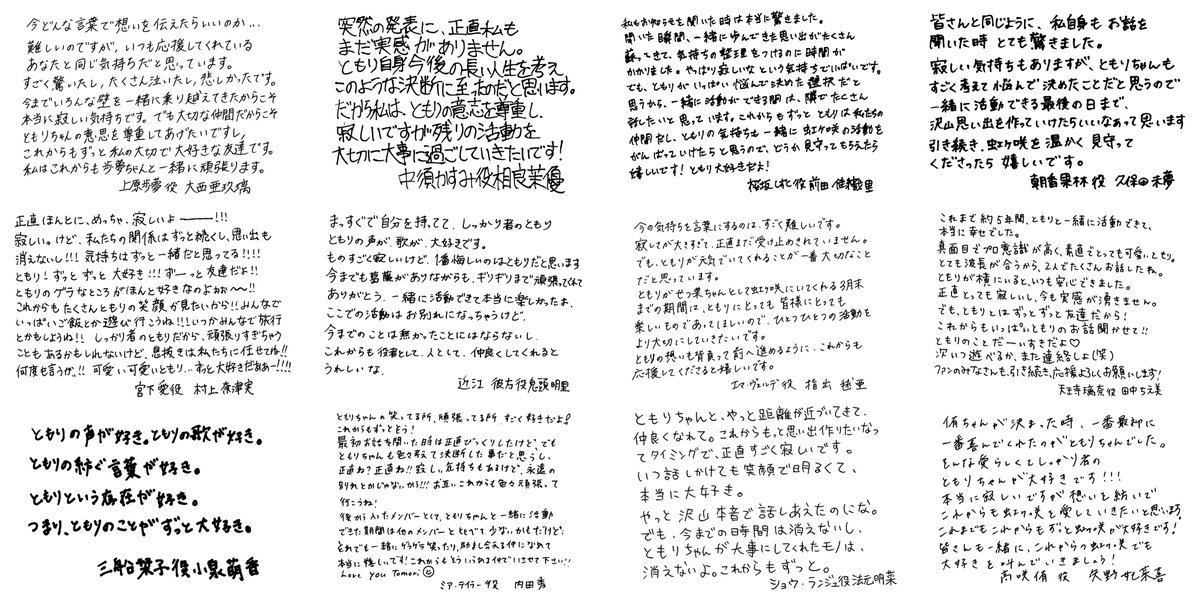 今どんな言葉で想いを伝えたらいいのか…
難しいのですが、いつも応援してくれている
あなたと同じ気持ちだと思っています。
すごく驚いたし、たくさん泣いたし、悲しかったです。
今までいろんな壁を一緒に乗り越えてきたからこそ
本当に寂しい気持ちです。でも大切な仲間だからこそ
ともりちゃんの意思を尊重してあげたいですし、
これからもずっと私の大切で大好きな友達です。
私はこれからも歩夢ちゃんと一緒に頑張ります。
上原歩夢役 大西亜玖璃
突然の発表に、正直私も
まだ実感がありません。
ともり自身今後の長い人生を考え
このような決断に至ったのだと思います。
だから私は、ともりの意志を尊重し、
寂しいですが残りの活動を
大切に大事に過ごしていきたいです!
中須かすみ役相良茉優
私もお知らせを聞いた時は本当に驚きました。
聞いた瞬間、一緒に歩んできた思い出がたくさん
蘇ってきて、気持ちの整理をつけるのに時間が
かかりました。やっぱり寂しいなという気持ちでいっぱいです。
でも、ともりがいっぱい悩んで決めた選択だと
思うから、一緒に活動ができる間は、隣でたくさん
話したいと思っています。これからもずっとともりは私たちの
仲間だし、ともりの気持ちも一緒に虹ヶ咲の活動を
がんばっていけたらと思うので、どうか見守ってもらえたら
嬉しいです!ともり大好きだよ!
桜坂しずく役 前田佳織里
皆さんと同じように、私自身もお話を
聞いた時とても驚きました。
寂しい気持ちもありますが、ともりちゃんも
すごく考えて悩んで決めたことだと思うので
一緒に活動できる最後の日まで、
沢山思い出を作っていけたらいいなぁって思います
引き続き、虹ヶ咲を温かく見守って
くださったら嬉しいです。
朝香果林役 久保田未夢
正直ほんとに、めっちゃ、寂しいよーーー!!!
寂しい。けど、私たちの関係はずっと続くし、思い出も
消えないし!!! 気持ちはずっと一緒だと思ってる!!!!
ともり!ずっとずっと大好き!!!ずーっと友達だよ!!
ともりのゲラなところがほんと好きなのよぉ〜!!
これからもたくさんともりの笑顔が見たいから!!みんなで
いっぱいご飯とか遊び行こうね!!!いつかみんなで旅行
とかもしようね!! しっかり者のともりだから、頑張りすぎちゃう
こともあるかもしれないけど、息抜きは私たちに任せてね!!
何度も言うが、!! 可愛い可愛いともり…あと大好きだぁぁー!!!!
宮下愛役 村上奈津実
まっすぐで自分を持ってて、しっかり者のともり
ともりの声が、歌が、大好きです。
ものすごく寂しいけど、1番悔しいのはともりだと思います
今までも葛藤がありながらも、ギリギリまで頑張ってくれて
ありがとう、一緒に活動できて本当に楽しかったよ、
ここでの活動はお別れになっちゃうけど、
今までのことは無かったことにはならないし、
これからも役者として、人として、仲良くしてくれると
うれしいな。
近江 彼方役鬼頭明里
今の気持ちを言葉にするのは、すごく難しいです。
寂しさが大きすぎて、正直まだ受け止めきれていません。
でも、ともりが元気でいてくれることが一番大切なこと
だと思っています。
ともりがせつ菜ちゃんとして虹ヶ咲にしてくれる3月末
までの期間は、ともりにとっても皆様にとっても
楽しいものであってほしいので、ひとつひとつの活動を
より大切にしていきたいです。
ともりの想いも背負って前へ進めるように、これからも
応援してくださると嬉しいです。
エマ・ヴェルデ役 指出毬亜
これまで約5年間、ともりと一緒に活動できて、
本当に幸せでした。
真面目でプロ意識が高く、素直でとっても可愛いともり。
とても波長が合うから、2人でたくさんお話したね。
ともりが横にいると、いつも安心できました。
正直とっても寂しいし、今も実感が湧きません。
でも、ともりとはずっとずっと友達だから!
これからもいっぱいともりのお話聞かせて!!
ともりのことだーいすきだよ♡
次いつ遊べるか、また連絡しよ(笑)
ファンのみなさんも、引き続き、応援よろしくお願いします!
天王寺璃奈役 田中ちえ美
ともりの声が好き。ともりの歌が好き。
ともりの紡ぐ言葉が好き。
ともりという存在が好き。
つまり、ともりのことがずっと大好き。
三船栞子役小泉萌香
ともりちゃんの笑ってる所、頑張ってる所、すごく好きだよ!
これからもずっとどう!
最初お話を聞いた時は正直びっくりしたけど、でも
ともりちゃんも色々考えて決断した事だと思うし、
正直ね?正直ね!!寂しい気持ちもあるけど、永遠の
別れとかじゃないから!!! お互いこれからも色々頑張って
行こうね!
後から入ったメンバーとして、ともりちゃんと一緒に活動
できた期間は他のメンバーとくらべて少ないかもだけど、
それでも一緒にゲラゲラ笑ったり、励まし合える仲になれて
本当に嬉しいです!これからもそういうある仲でいさせて下さい!!
Love you Tomori☺
ミア・テイラー役 内田秀
ともりちゃんと、やっと距離が近づいてきて、
仲良くなれて。これからもっと思い出作りたいなっ
てタイミングで、正直すごく寂しいです。
いつ話しかけても笑顔で明るくて、
本当に大好き。
やっと沢山本音で話しあえたのにな。
でも、今までの時間は消えないし、
ともりちゃんが大事にしてくれたモノは、
消えないよ。これからもずっと。
ショウ・ランジュ役法元明菜
侑ちゃんが決まった時、一番最初に
一番喜んでくれたのがともりちゃんでした。
そんな愛らしくてしっかり者の
ともりちゃんが大好きです!!!
本当に寂しいですが想いを紡いで
これからも虹ヶ咲を愛していきたいと思います!
これまでもこれからもずっと虹ヶ咲が大好きです!
皆さんも一緒に、これからの虹ヶ咲でも
大好きを叫んでいきましょう!
高咲侑役 矢野妃菜喜